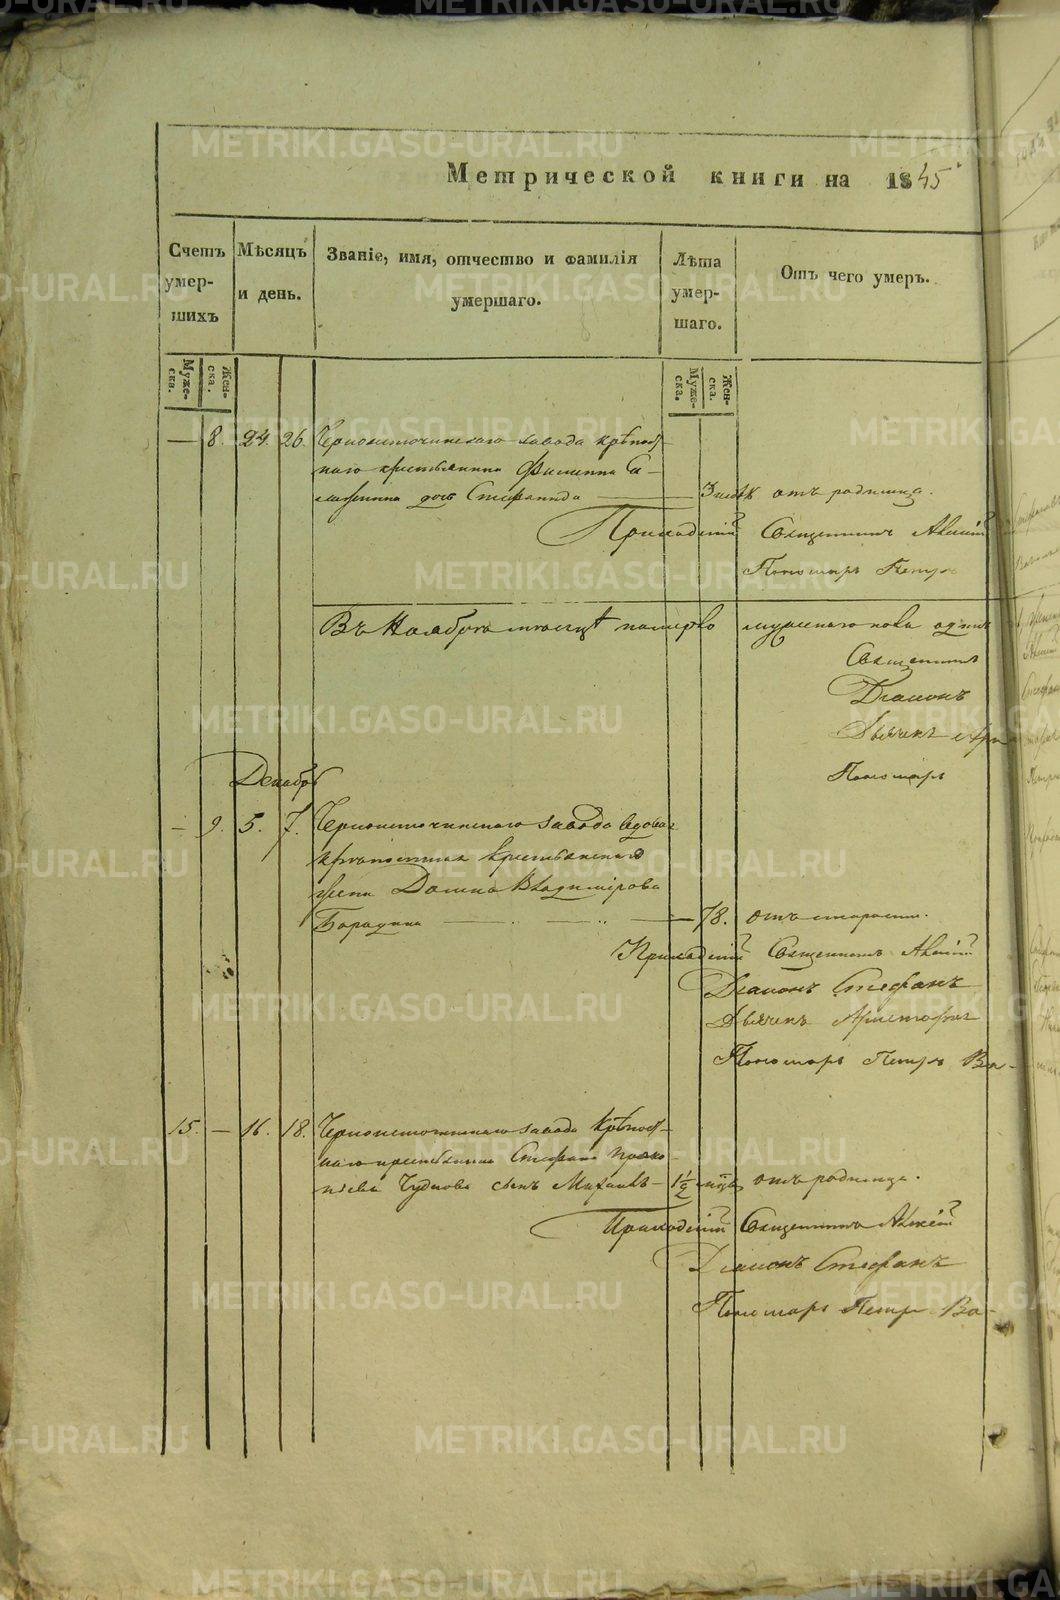 Метрической книги на 1845
Счетъ умер-шихъ
Мѣсяцъ и день.
Званіе, имя, отчество и фамилія умершаго.
Лѣта умер-шаго.
Отъ чего умеръ.
Муже-ска.
Жен-ска.
Муже-ска.
Жен-ска.
— 8. 24. 26. Черноисточинскаго завода крѣпост-
наго крестьянина Филиппа
дочь Стефанида 3 отъ родимца.
Приходскій Священникъ Алексій
Пономарь Петръ
Въ Ноябрѣ мѣсяцѣ померло мужескаго пола одинъ
Священникъ
Діаконъ
Дьячекъ
Пономарь
Декабрь
— 9. 5. 7. Черноисточинскаго завода вдовая
крѣпостная крестьянская
жена Домна Владимірова
Бородина — 78. отъ старости.
Приходскій Священникъ Алексій
Діаконъ Стефанъ
Дьячекъ
Пономарь Петръ Ва-
15. — 16. 18. Черноисточинскаго завода крѣпост-
наго крестьянина Стефана Проко-
піева Чуднова сынъ Михаилъ — 1½ отъ родимца.
Приходскій Священникъ Алексій
Діаконъ Стефанъ
Пономарь Петръ Ва-
METRIKI.GASO-URAL.RU